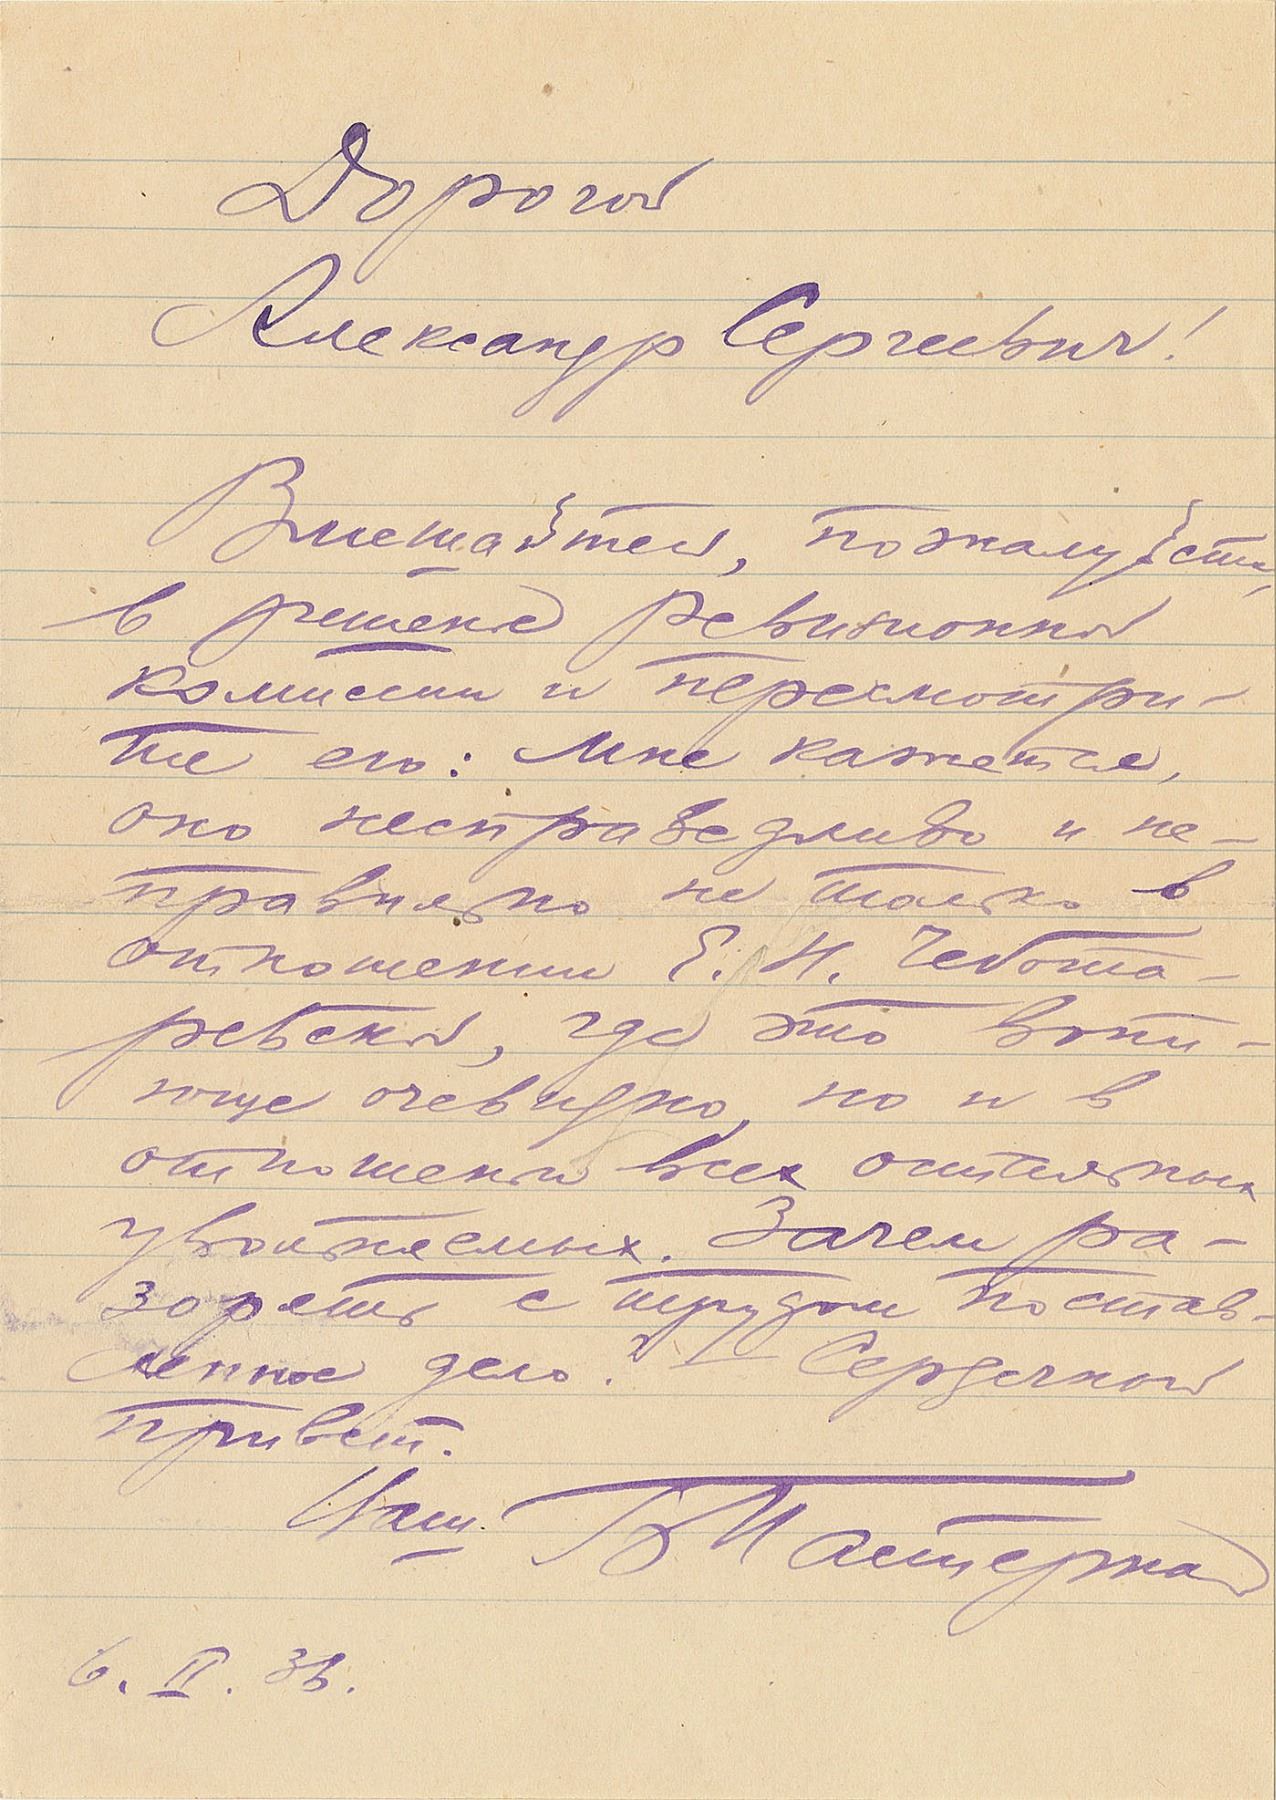 Дорогой
Александр Сергеевич!
Вмешайтесь, пожалуйста,
в решение Ревизионной
комиссии и пересмотри-
те его: мне кажется,
оно несправедливо и не-
правильно не только в
отношении Е. Н. Чебота-
ревской, где это вопи-
юще очевидно, но и в
отношении всех остальных
увольняемых. Зачем ра-
зорять с трудом постав-
ленное дело? — Сердечный
привет.
Ваш Б Пастернак
6. II. 36.